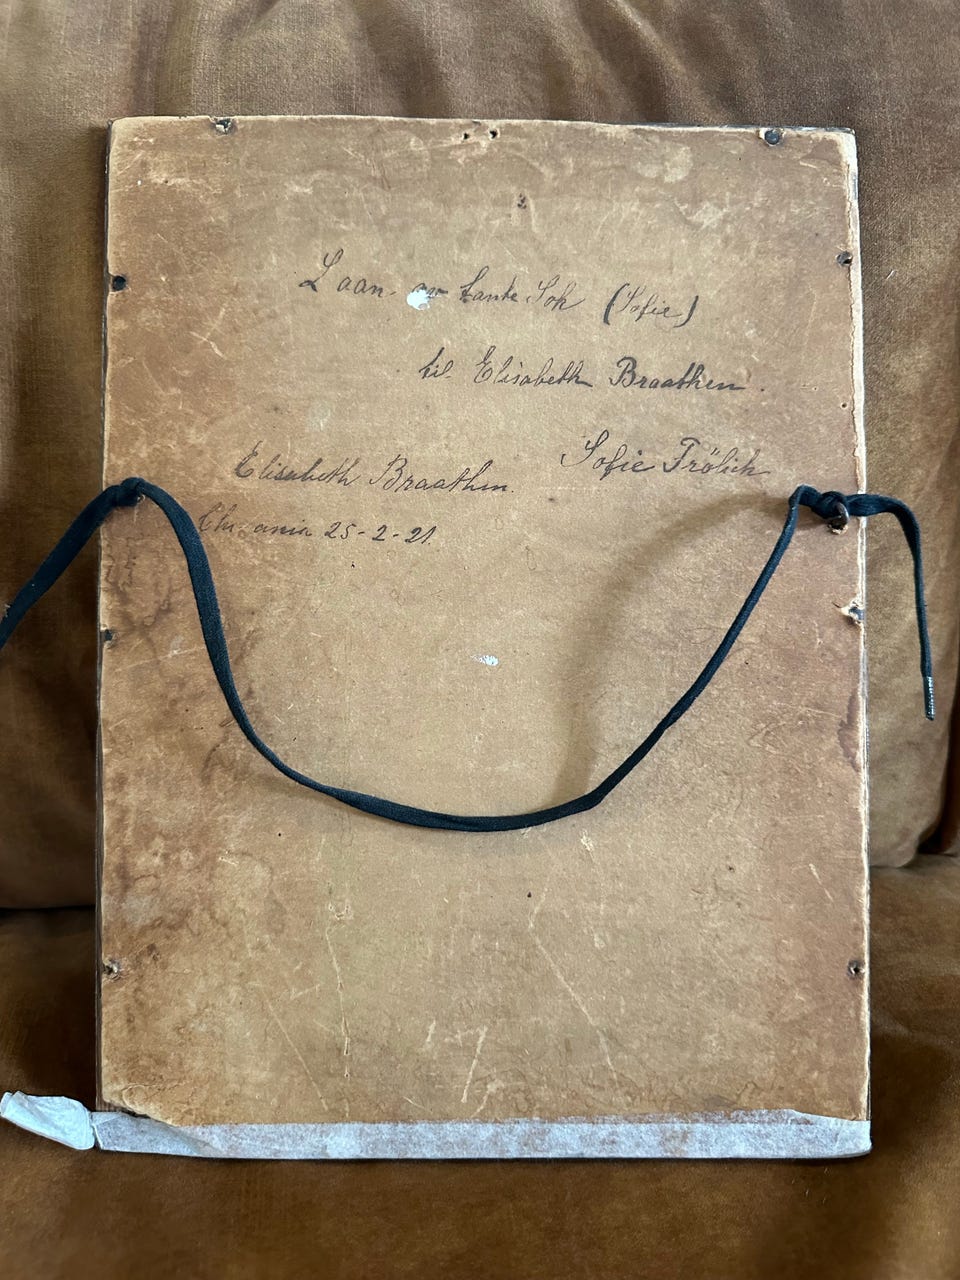 Laan av tante Soh (Sofie)
til Elisabeth Braathen.
Sofie Frölich
Elisabeth Braathen.
25-2-21.